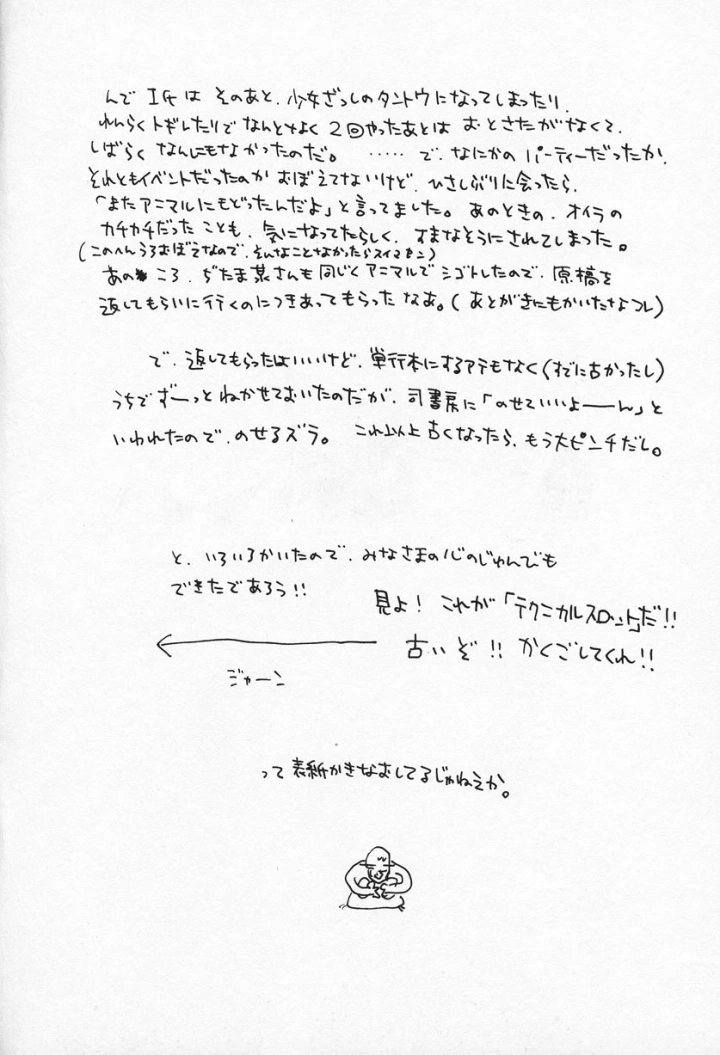 んで IFは そのあと、少女ざっしのタントウになってしまったり、
れんらくトギレたりでなんとなく 2回やったあとは おとさたがなくて、
しばらく なんにもなかったのだ。 ‥‥‥ で、なにかの パーティーだったか、
それともイベントだったのか おぼえてないけど、ひさしぶりに会ったら、
「またアニマルにもどったんだよ」と言ってました。あのときの、オイラの
カチカチだった ことも、気になってたらしく、すまなそうにされてしまった。
(このへんうろおぼえなので、そんなことなかったらスイマセン)
あの ころ、ぢたま某さんも同じくアニマルで シゴトしたので、原稿を
返してもらいに行くのにつきあってもらった なあ。(あとがきにもかいたなコレ)
で、返してもらったはいいけど、単行本にするアテもなく(すでに古かったし)
うちでずーっと ねかせておいたのだが、司書房に「のせていいよーーん」と
いわれたので、のせるズラ。 これ以上古くなったら、もう大ピンチだし。
と、いろいろかいたので、みなさまの心のじゅんびも
できたであろう!!
見よ! これが「テクニカルスロット」だ!!
古いぞ!! かくごしてくれ!!
ジャーン
って 表紙かきなおしてるじゃねえか。